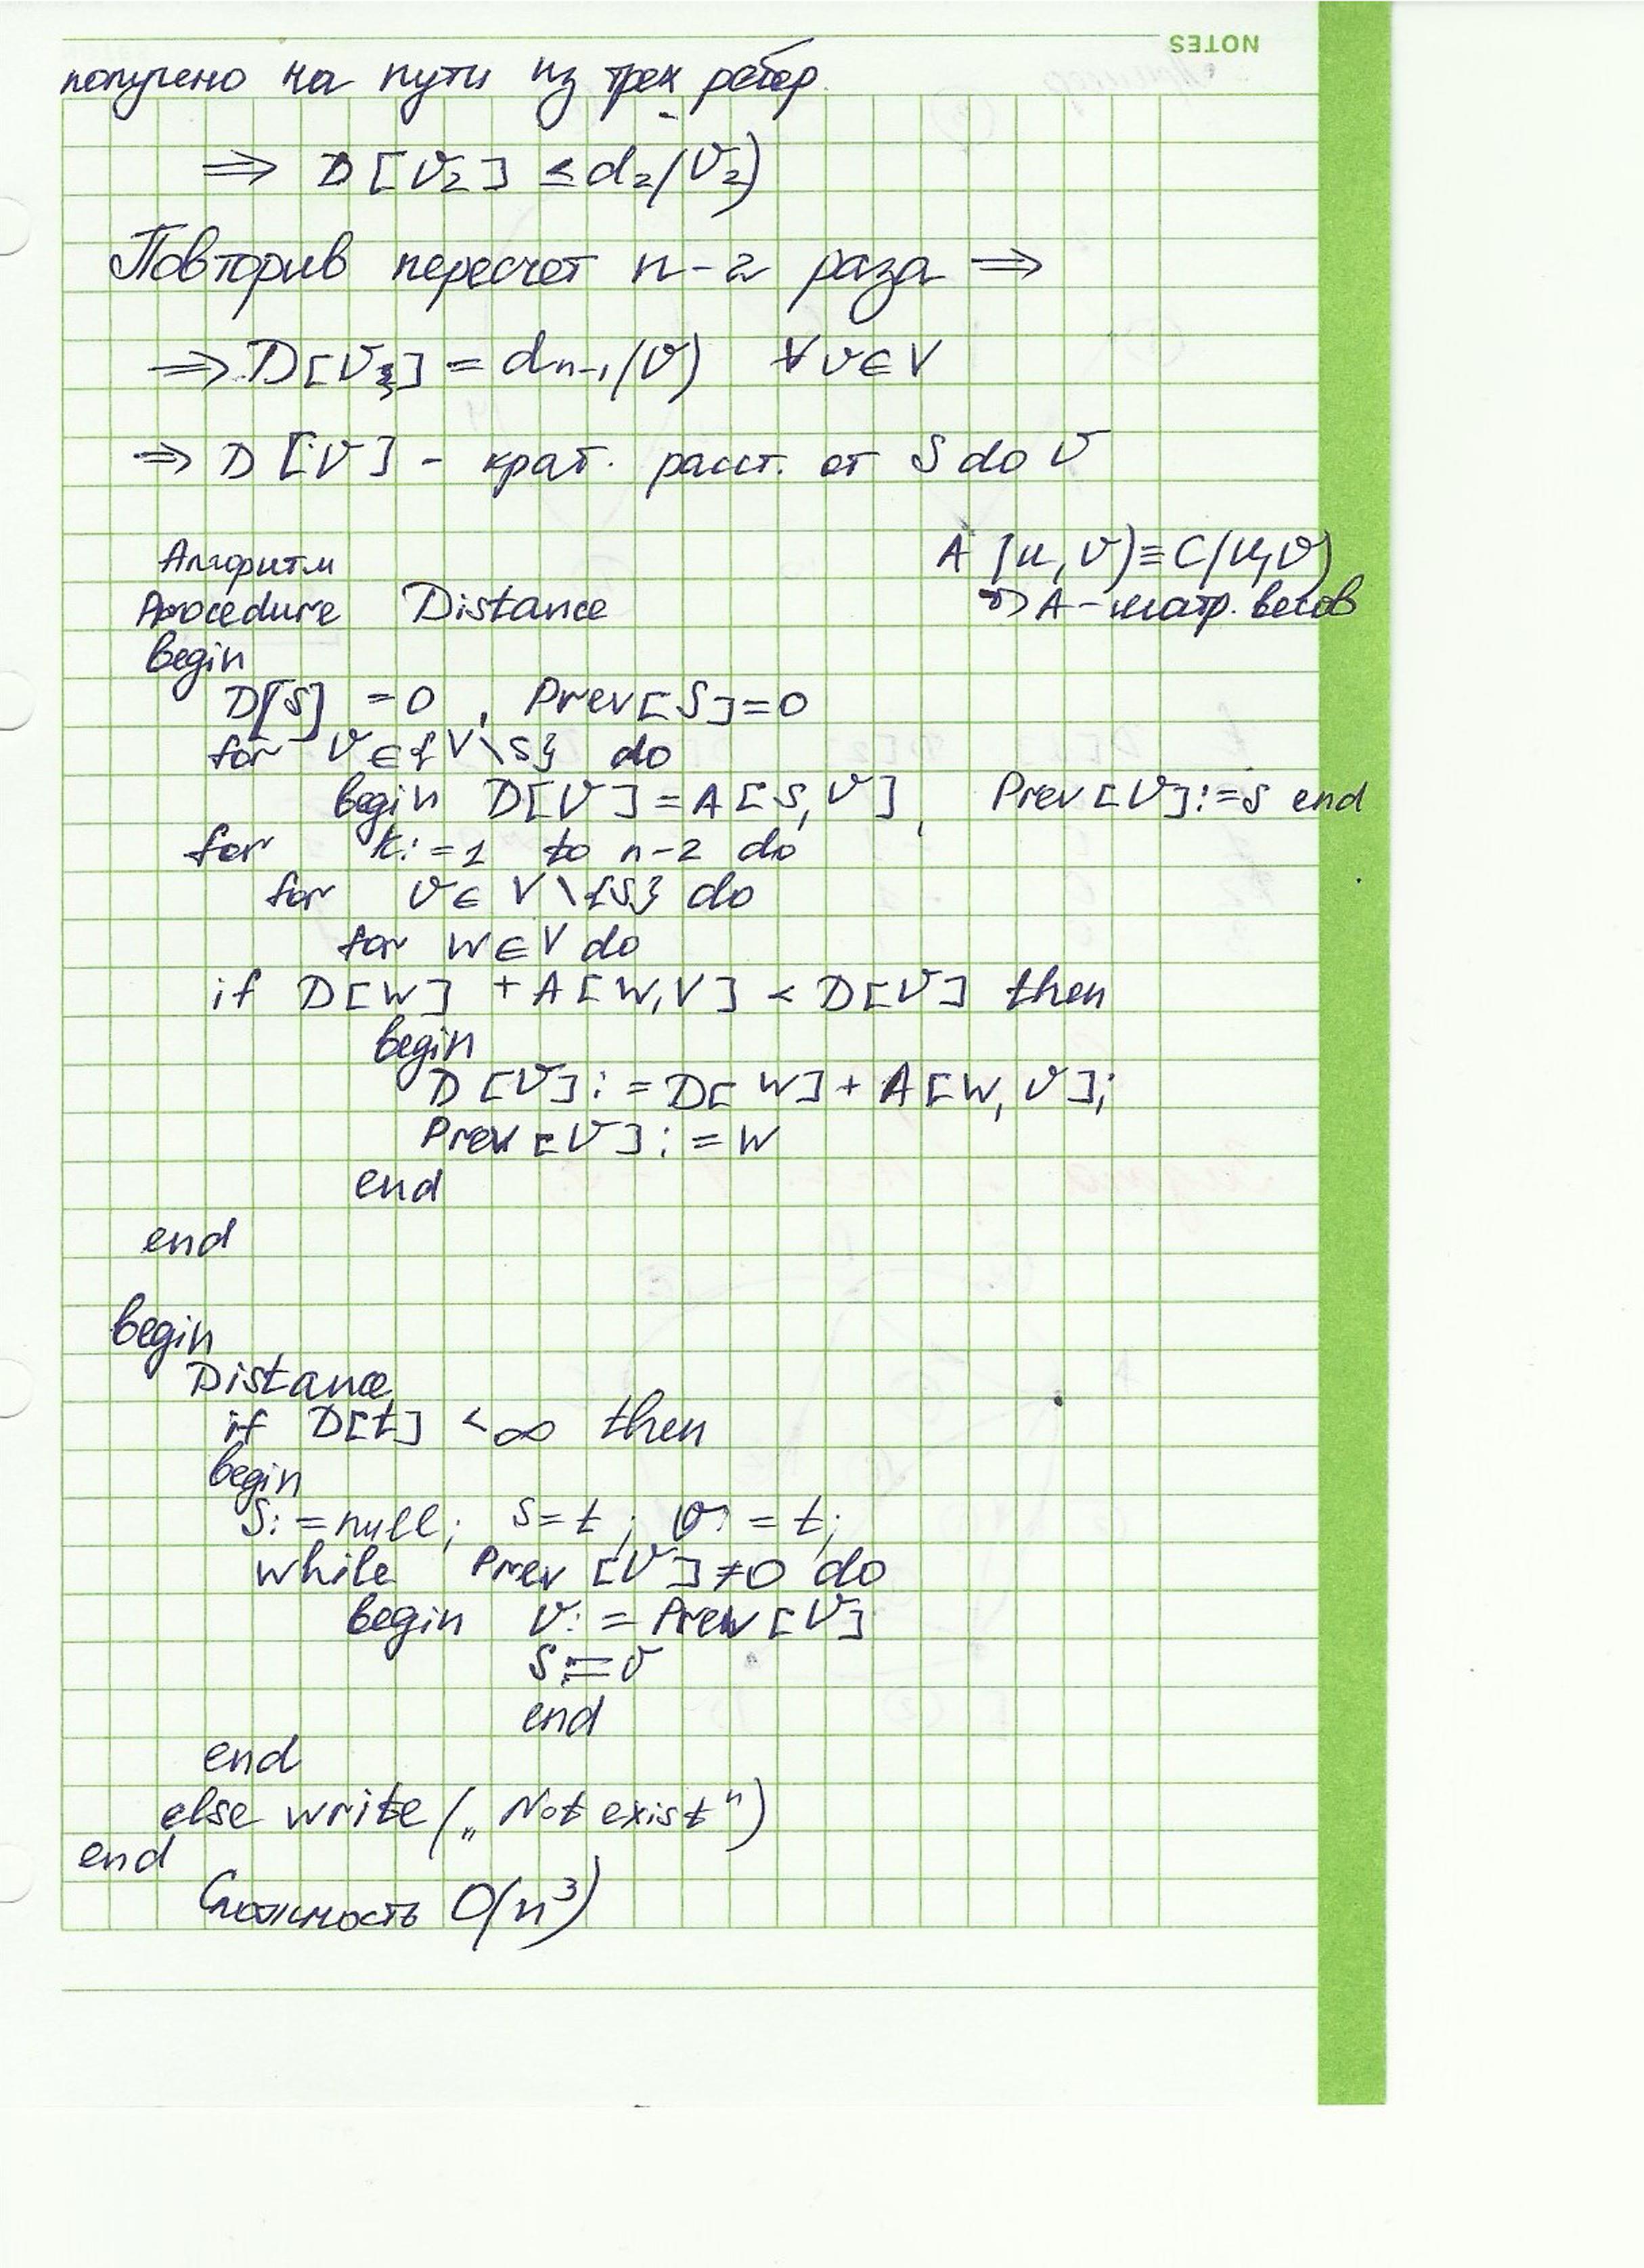 NOTES
получено на пути из трех ребер
⇒ D[V₂] ≤ d₂(V₂)
Повторив пересчет n-2 раза ⇒
⇒ D[V] = dn-1(V) ∀ v∈V
⇒ D[V] - крат. расст. от S do V
Алгоритм
A [u, v] ≡ C(u,v)
A - матр. весов
Procedure Distance
begin
D[S] = 0, Prev[S]=0
for V∈{V\S} do
begin D[V] = A[S,V], Prev[V]:=S end
for k:=1 to n-2 do
for v∈V\{S} do
for w∈V do
if D[W] + A[W,V] < D[V] then
begin
D[V]:=D[W]+A[W,V];
Prev[V]:=W
end
end
begin
Distance
if D[t] < ∞ then
begin
S:=null; S=t; V:=t;
while Prev[V]≠0 do
begin V:=Prev[V]
S:=V
end
end
else write(„Not exist")
end
Сложность O(n³)